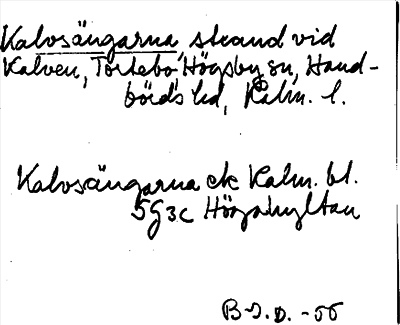 Kalvsängarna, strand vid
Kalven, Törtebo, Högsby sn, Hand-
börds hd, Kalm. l.
Kalvsängarna ek Kalm. bl.
5G3c Högahultan
B-I.D. -55